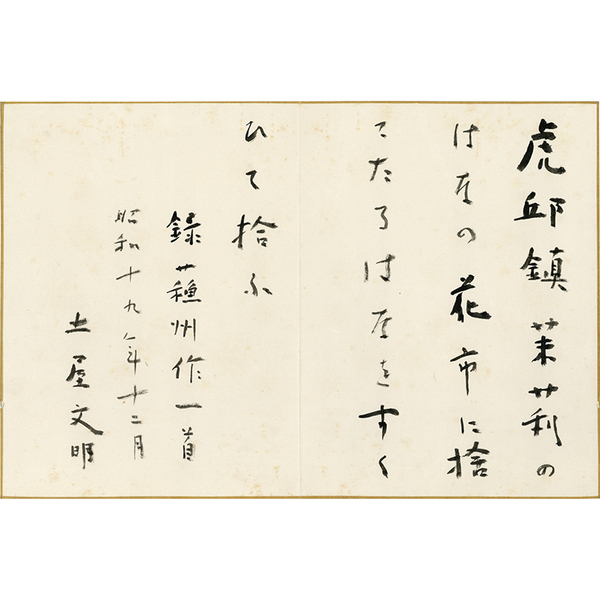 虎邱鎮茉莉の
はなの花市に捨
てたるはなをすく
ひて拾ふ
録蘓州作一首
昭和十九年十二月
土屋文明